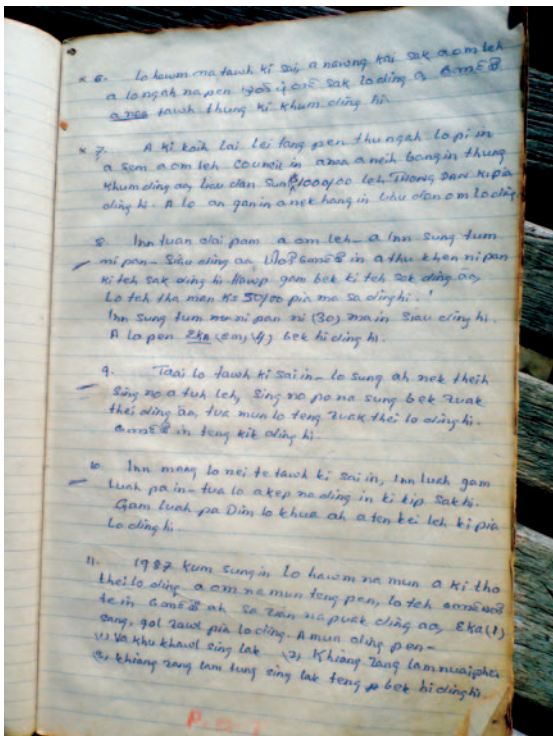 x 6. Lo hawm na tawh ki sai, a nawng kai sak a om leh
a longah na pen sak lo ding a
a nek tawh thung ki khum ding hi.
x 7. A ki koih lai lei tang pen thu ngah lo pi in
a sem a om leh Council in anaa a neih bangin thung
khum ding aa, liau dan sum 1000/00 leh THONG DAN ki pia
ding hi. A lo an gan in a nek hang in liau dan om lo ding
8. Inn tuan dai pam a om leh a Inn sung tum
ni pan siau ding aa in a thu khen ni pan
ki teh sak ding hi. Hawp gam bek ki teh sak ding aa,
Lo teh tha man Ks 50/00 pia ma sa ding hi.
Inn sung tum na ni pan ni (30) ma in siau ding hi.
A lo pen Eka bek hi ding hi.
9. Taai lo tawh ki sai in lo sung ah nek theih
sing no a tuh leh, sing no po na sung bek zuak
thei ding aa, tua mun lo teng zuak thei lo ding hi.
in teng kik ding hi.
10. Inn mang lo nei te tawh ki sai in, Inn luah gam
luah pa in tua lo a kep na ding in ki kip sak hi.
Gam luah pa Dim lo khua ah a ten kei leh ki pia
lo ding hi.
11. 1987 kum sung in Lo hawm na mun a ki tho
thei lo ding a om na mun teng pen, lo teh
te in ah sa zian na puak ding aa, Eka (1)
sang, gol zawl pia lo ding. A mun ding pen-
(1) Va khu khawl sing lak (2) Khiang zang lam nuai phei
(3) Khiang zang lam tung sing lak teng bek hi ding hi.